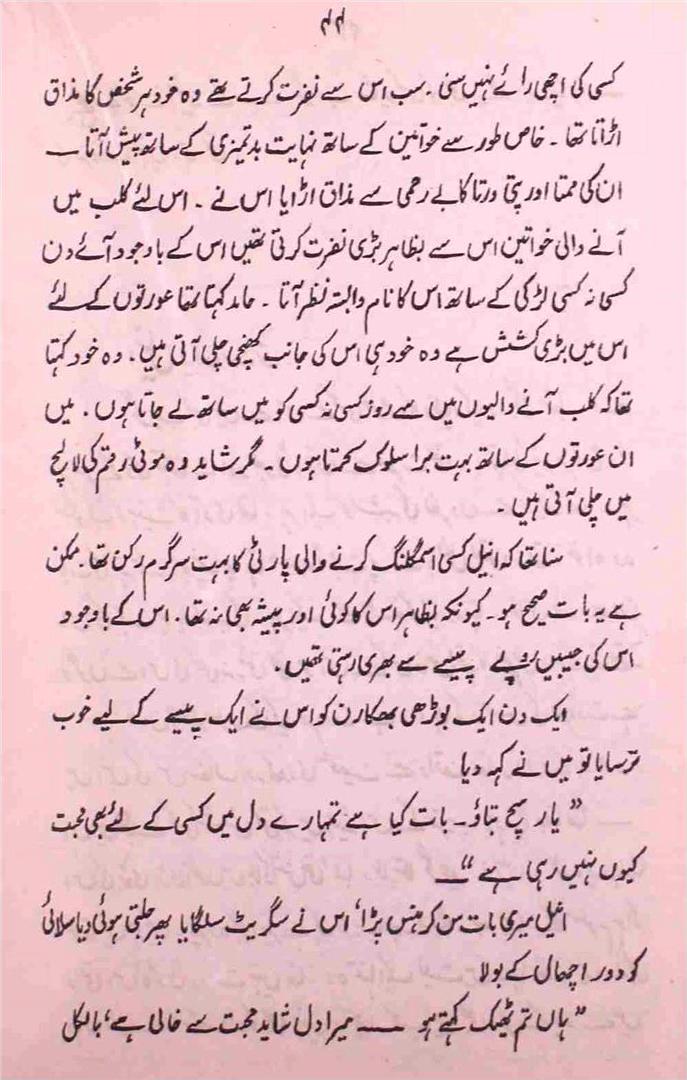 ۴۴
کسی کی اچھی رائے نہیں سنی ۔ سب اس سے نفرت کرتے تھے وہ خود ہر شخص کا مذاق
اڑاتا تھا ۔ خاص طور سے خواتین کے ساتھ نہایت بدتمیزی کے ساتھ پیش آتا —
ان کی ممتا اور پتی ورتا کا بے رحمی سے مذاق اڑایا اس نے ۔ اس لئے کلب میں
آنے والی خواتین اس سے بظاہر بڑی نفرت کرتی تھیں اس کے باوجود آئے دن
کسی نہ کسی لڑکی کے ساتھ اس کا نام وابستہ نظر آتا ۔ حامد کہتا تھا عورتوں کے لئے
اس میں بڑی کشش ہے وہ خود ہی اس کی جانب کھنچی چلی آتی ہیں ۔ وہ خود کہتا
تھا کہ کلب آنے والیوں میں سے روز کسی نہ کسی کو میں ساتھ لے جاتا ہوں ۔ میں
ان عورتوں کے ساتھ بہت برا سلوک کرتا ہوں ۔ مگر شاید وہ موٹی رقم کی لالچ
میں چلی آتی ہیں ۔
سنا تھا کہ انیل کسی اسمگلنگ کرنے والی پارٹی کا بہت سرگرم رکن تھا ۔ ممکن
ہے یہ بات صحیح ہو ۔ کیونکہ بظاہر اس کا کوئی اور پیشہ بھی نہ تھا ۔ اس کے باوجود
اس کی جیبیں روپے پیسے سے بھری رہتی تھیں ۔
ایک دن ایک بوڑھی بھکارن کو اس نے ایک پیسے کے لیے خوب
ترسایا تو میں نے کہہ دیا
”یار سچ بتاؤ ۔ بات کیا ہے تمہارے دل میں کسی کے لئے بھی محبت
کیوں نہیں رہی ہے“ —
انیل میری بات سن کر ہنس پڑا، اس نے سگریٹ سلگایا پھر جلتی ہوئی دیا سلائی
کو دور اچھال کے بولا
”ہاں تم ٹھیک کہتے ہو — میرا دل شاید محبت سے خالی ہے، بالکل